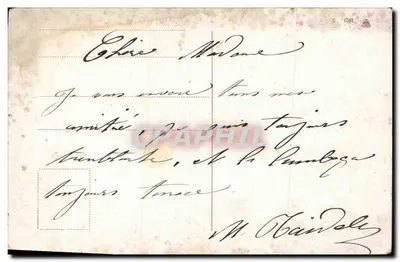 Chère Madame
Je vous envoie tous mes
amitiés, je suis toujours
tremblante, et le lumbago
toujours tenace
M.
CPAPHIL